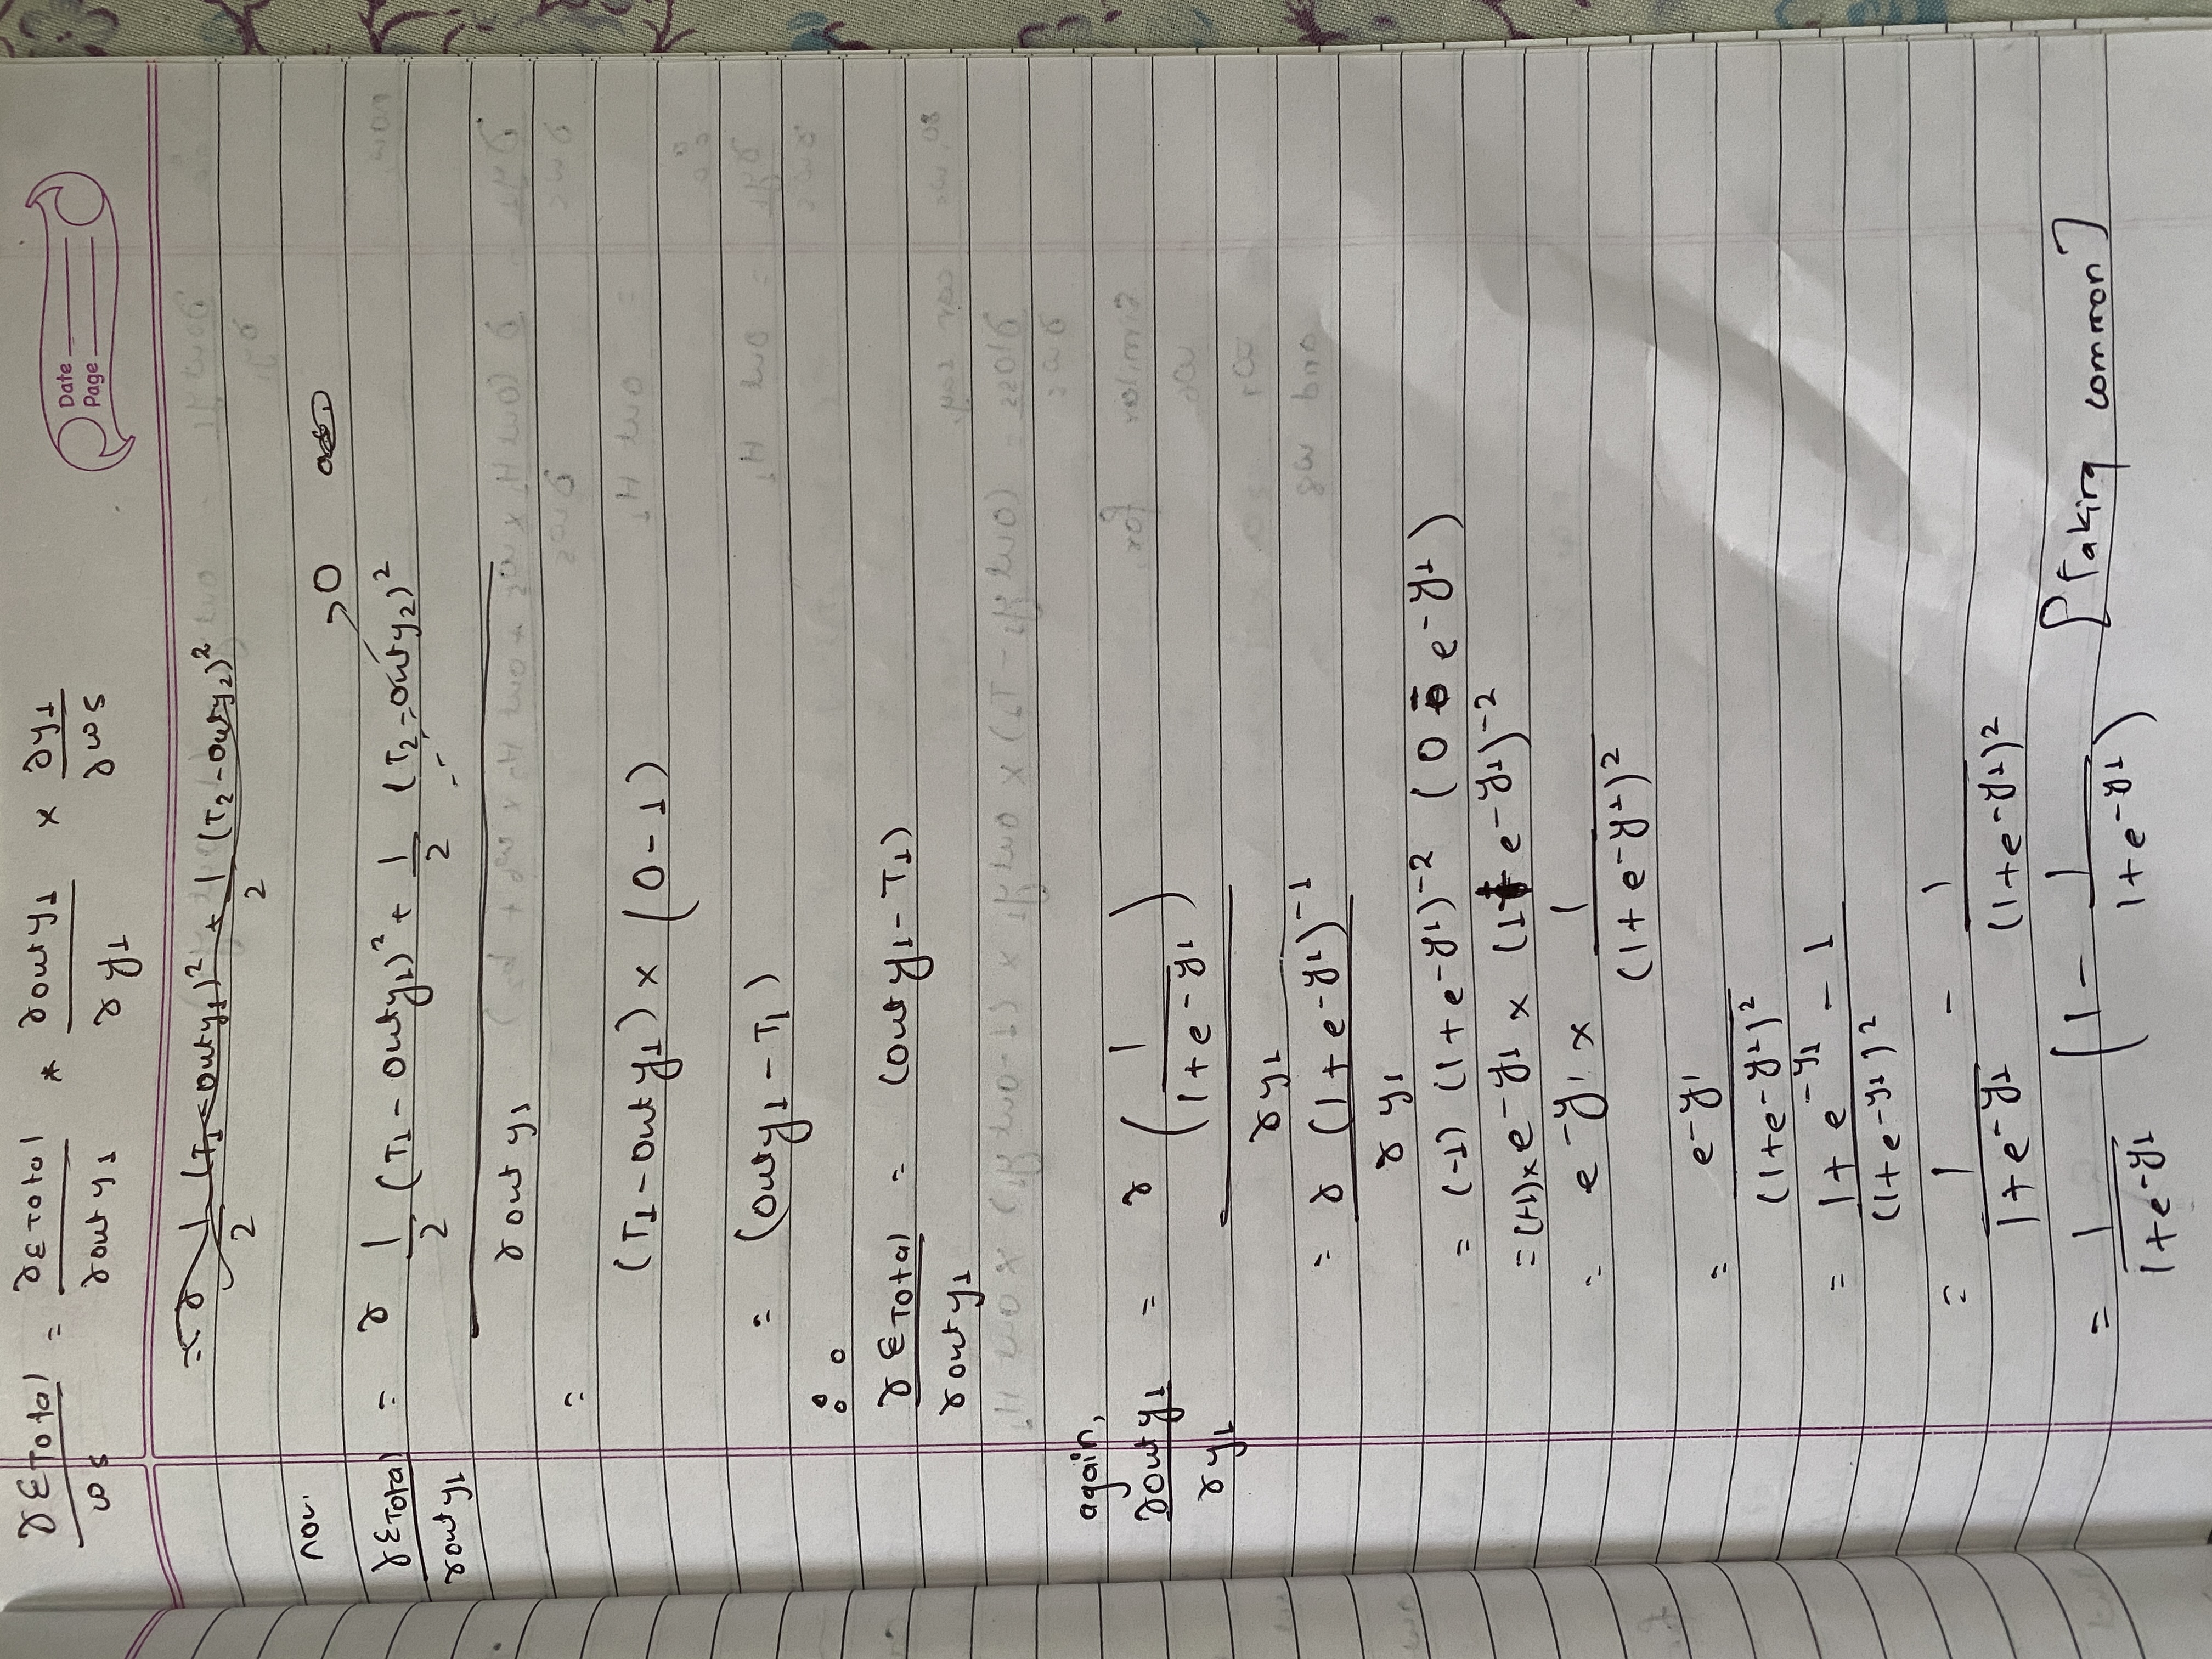 ∂ETotal / w5 = ∂ETotal / ∂out y1 * ∂out y1 / ∂y1 × ∂y1 / ∂w5
Date
Page
= ∂ 1/2 (T1 - out y1)² + 1/2 (T2 - out y2)²
now.
→ 0
∂ETotal / ∂out y1 = ∂ 1/2 (T1 - out y1)² + 1/2 (T2 - out y2)² / ∂out y1
=
(T1 - out y1) × (0 - 1)
= (out y1 - T1)
∴
∂ETotal / ∂out y1 = (out y1 - T1)
again,
∂out y1 / ∂y1 = ∂ (1 / 1+e^-y1) / ∂y1
= ∂ (1+e^-y1)^-1 / ∂y1
= (-1) (1+e^-y1)^-2 (0 - e^-y1)
= (+1) × e^-y1 × (1+e^-y1)^-2
= e^-y1 × 1 / (1+e^-y1)²
= e^-y1 / (1+e^-y1)²
= 1+e^-y1 - 1 / (1+e^-y1)²
= 1 / 1+e^-y1 - 1 / (1+e^-y1)²
= 1 / 1+e^-y1 (1 - 1 / 1+e^-y1) [Taking common]